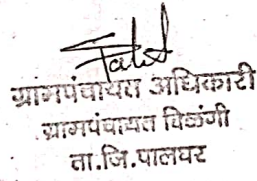 ग्रामपंचायत अधिकारी
ग्रामपंचायत विळंगी
ता.जि.पालघर